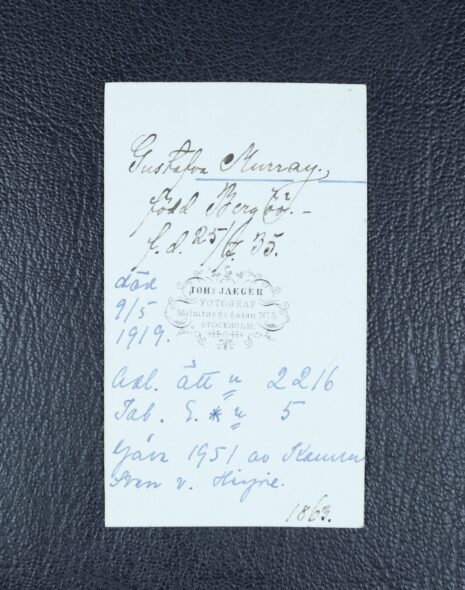 Gustafva Murray.,
född Berg
f. d. 25/7 35.
död
9/5
1919.
JOHS JAEGER
FOTOGRAF
Malmtorgsgatan No 5,
STOCKHOLM.
Adl. ätt n 2216
Tab. 5
Gåva 1951 av
Sven v.
1863.